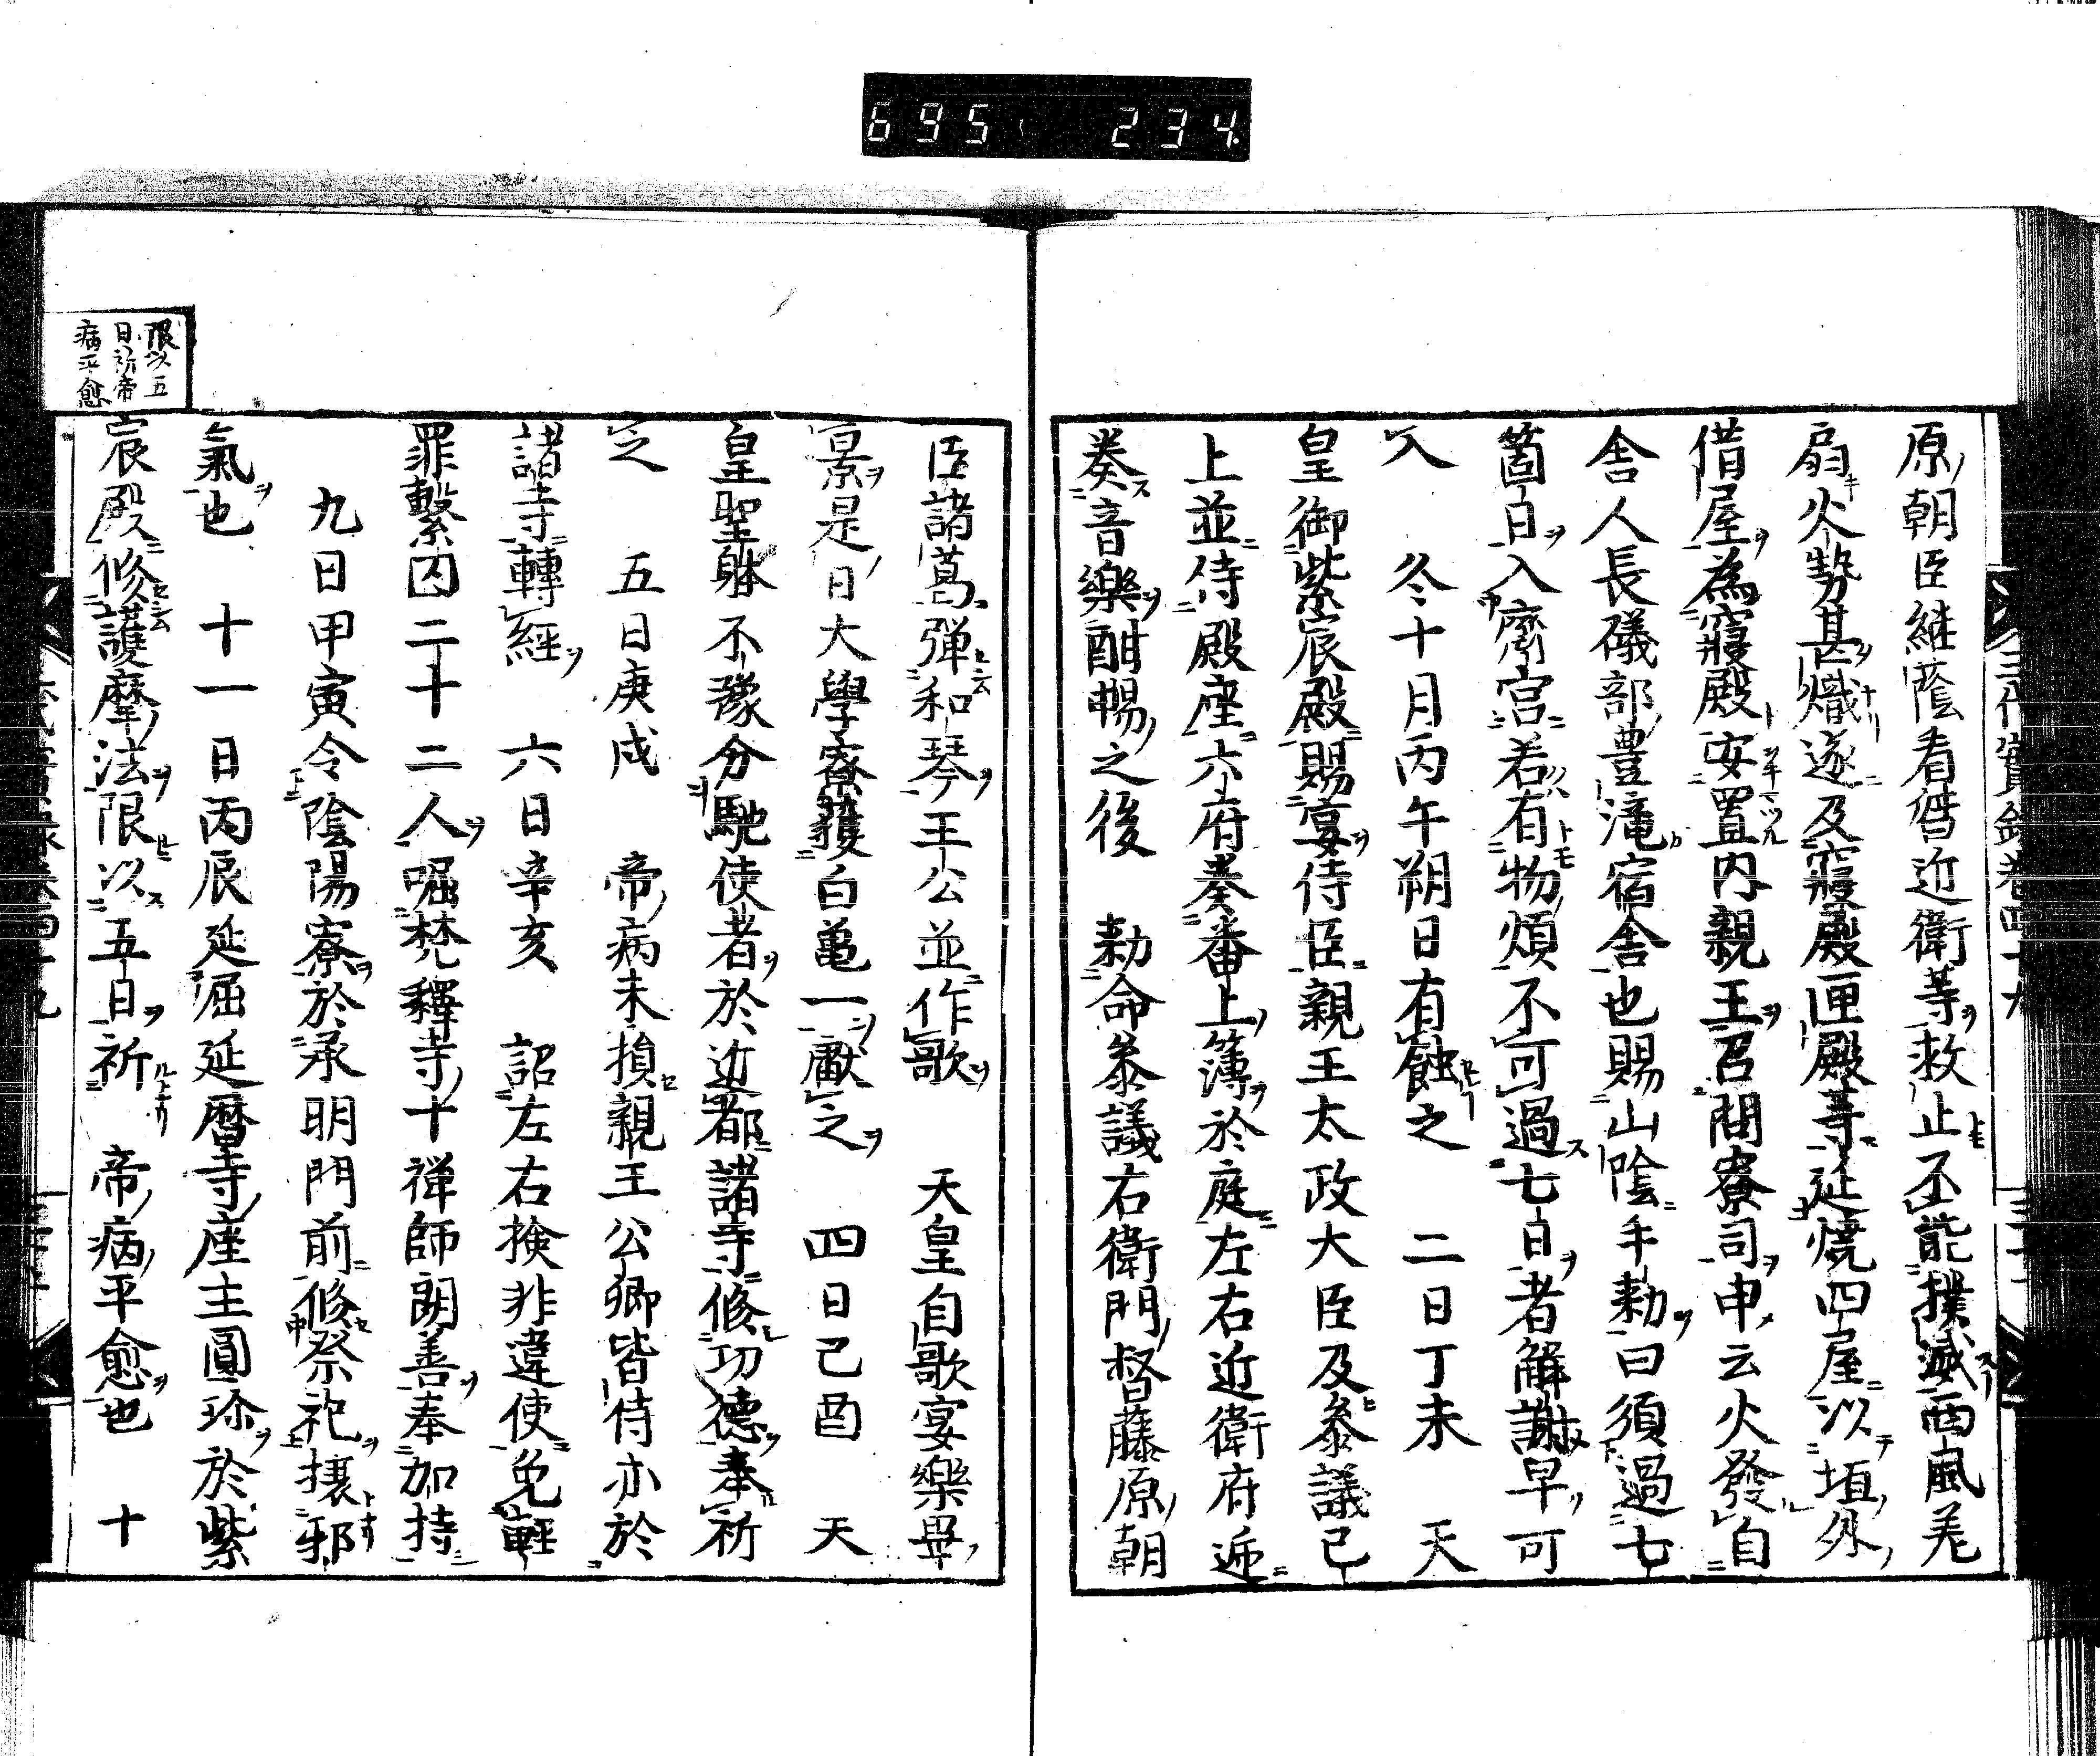 695 234
原朝臣継蔭看督近衛等救止不能撲滅西風羌
扇火勢甚熾遂及寝殿匣殿等延焼四屋以垣外
借屋為寝殿安置内親王召問寮司申云火發自
舎人長礒部豊滝宿舎也賜山陰手勅曰須過七
箇日入齋宮若有物煩不可過七日者解謝早可
入　冬十月丙午朔日有蝕之　二日丁未　天
皇御紫宸殿賜宴侍臣親王太政大臣及參議已
上並侍殿座六府奏番上簿於庭左右近衛府逓
奏音樂酣暢之後　勅命參議右衛門督藤原朝
臣諸葛弾和琴王公並作歌　天皇自歌宴樂畢
景是日大學寮獲白亀一獻之　四日己酉　天
皇聖躰不豫分馳使者於近都諸寺修功德奉祈
之　五日庚戌　帝病未損親王公卿皆侍亦於
諸寺轉經　六日辛亥　詔左右検非違使免輕
罪繋囚二十二人堀梵釋寺十禅師朗善奉加持
九日甲寅令陰陽寮於承明門前修祭祀攘邪
氣也　十一日丙辰延堀延暦寺座主圓珎於紫
宸殿修護摩法限以五日祈　帝病平愈也　十
限以五
日祈帝
病平愈
三代實錄卷四十九